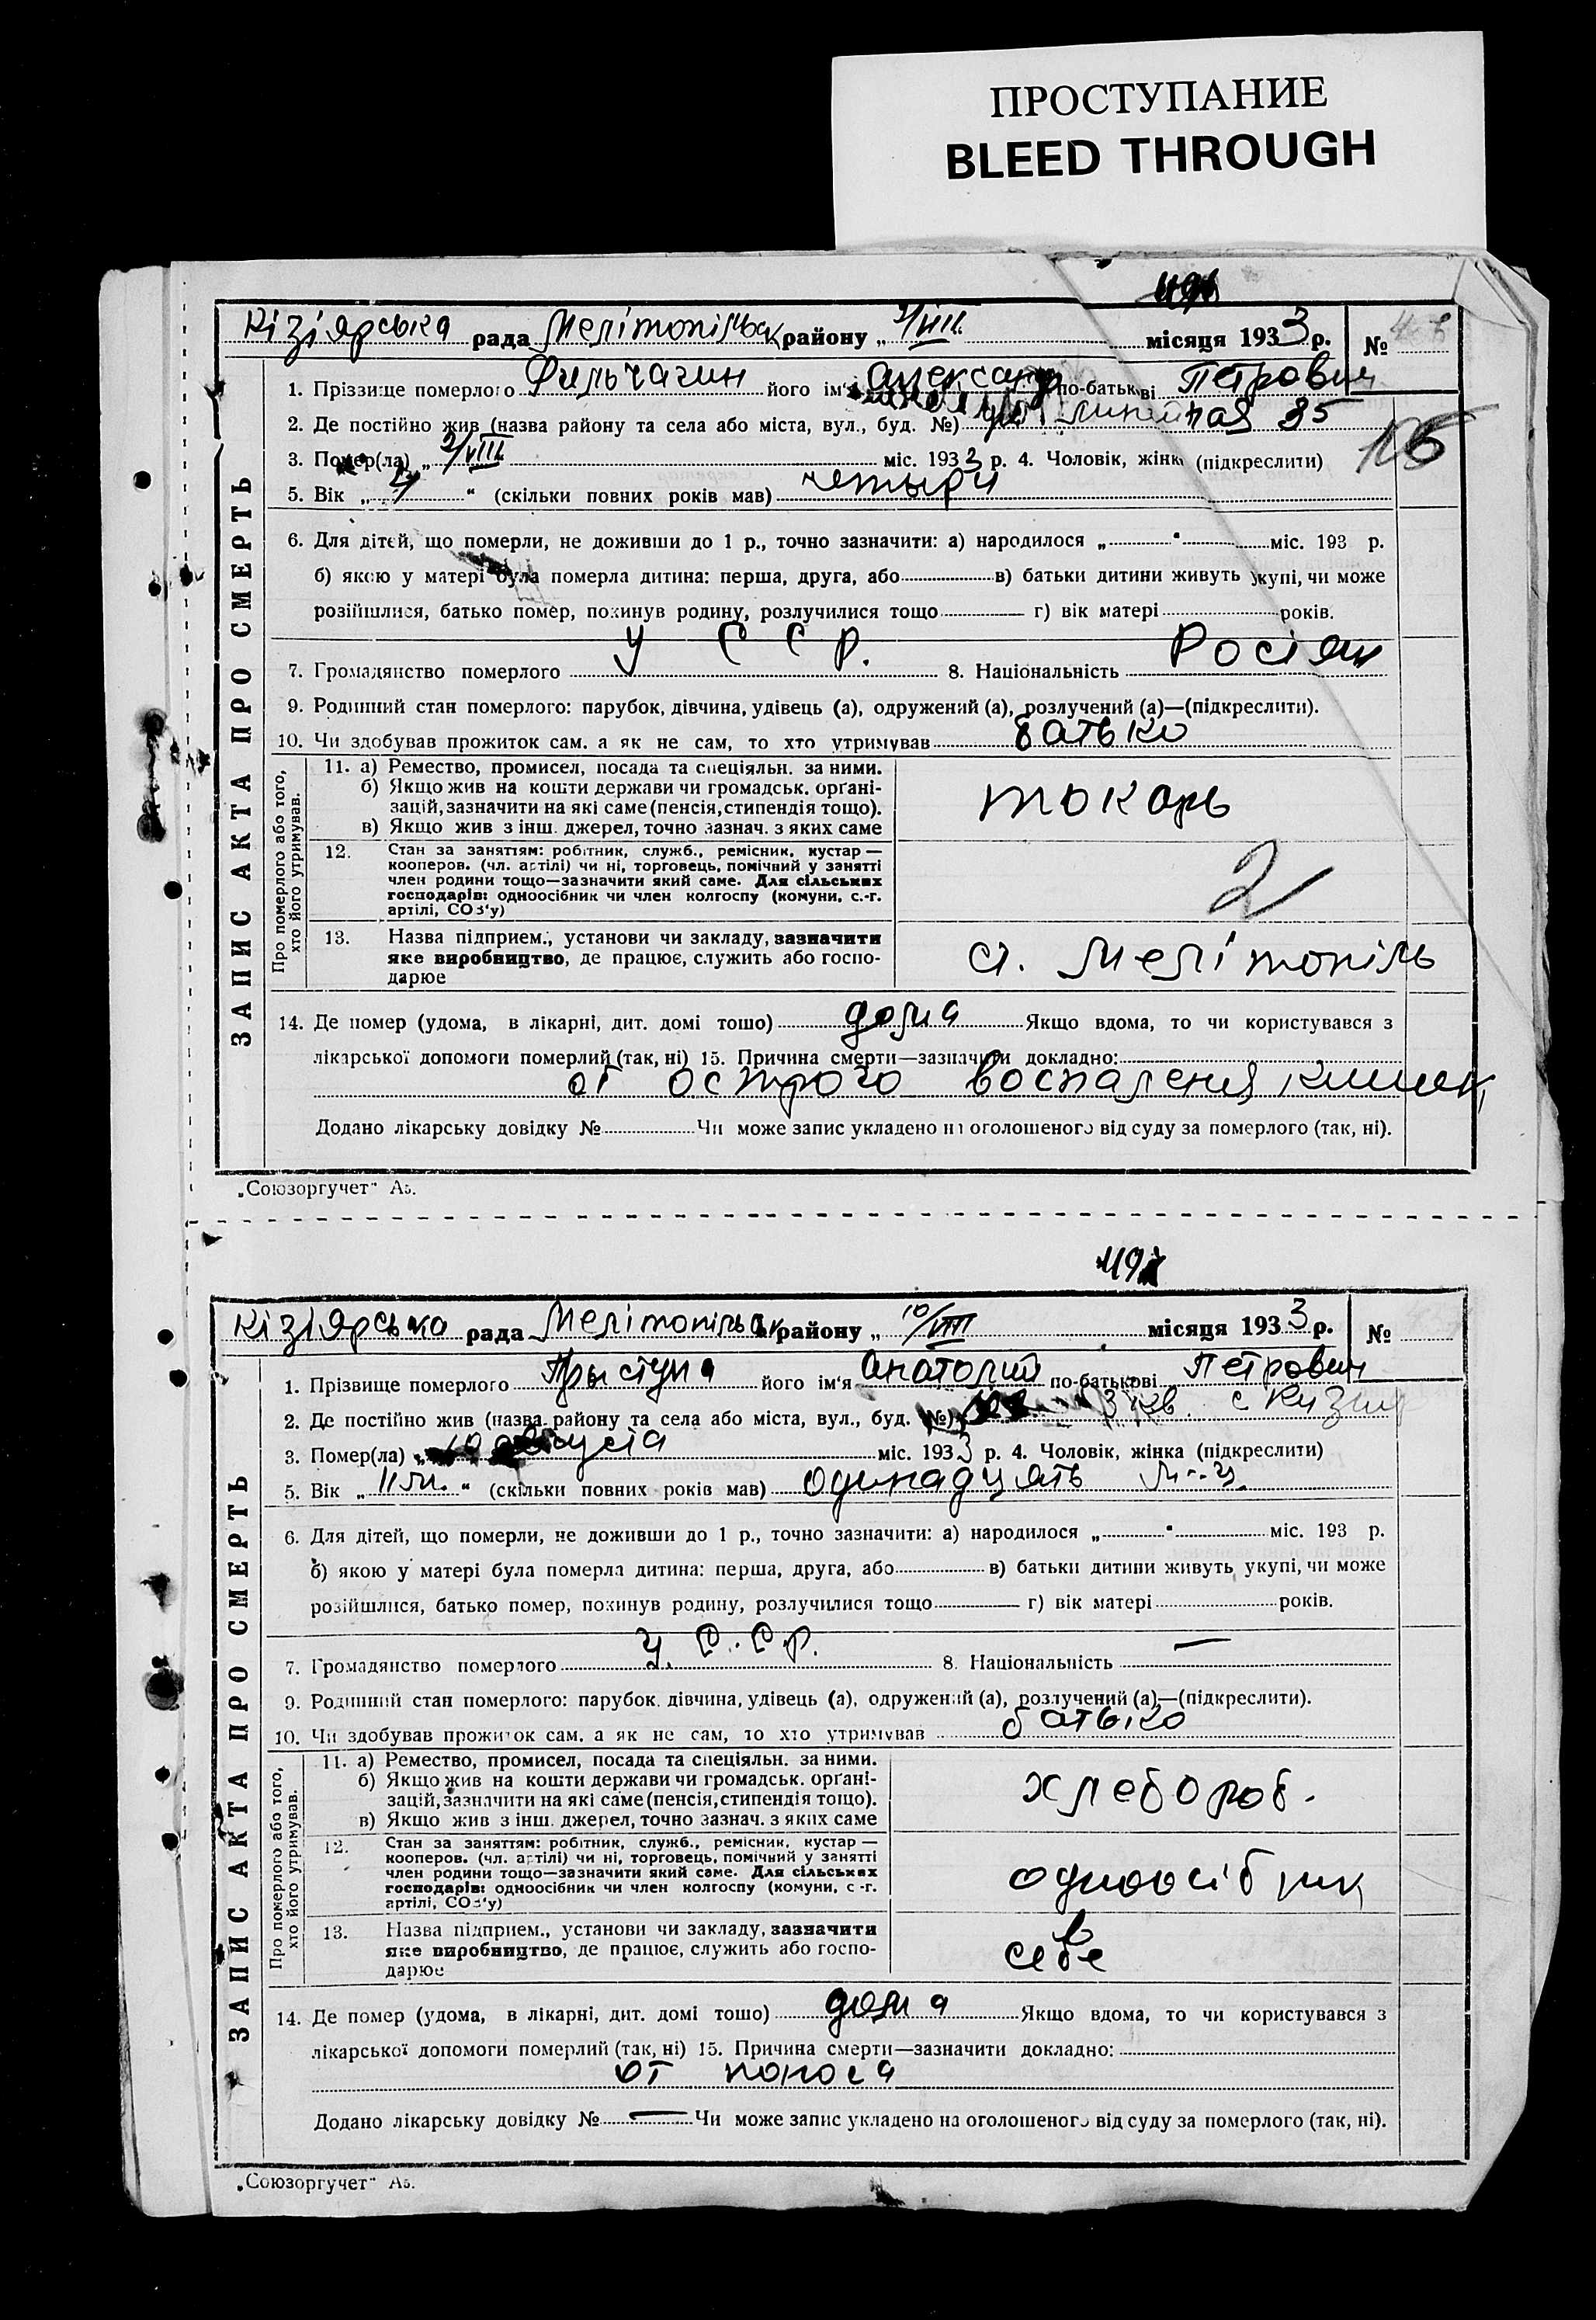 ПРОСТУПАНИЕ
BLEED THROUGH
ЗАПИС АКТА ПРО СМЕРТЬ
Кізіярська рада Мелітопільськ району „ /VIII. місяця 1933 р. №
1. Прізвище померлого Фильчагин його ім'я Александр по-батькові Петрович
2. Де постійно жив (назва району та села або міста, вул., буд. №) 35
105
3. Помер(ла) „ /VIII міс. 1933 р. 4. Чоловік, жінка (підкреслити)
5. Вік „ 4 “ (скільки повних років мав) четыри
6. Для дітей, що померли, не доживши до 1 р., точно зазначити: а) народилося „ “ міс. 193 р.
б) якою у матері була померла дитина: перша, друга, або в) батьки дитини живуть укупі, чи може
розійшлися, батько помер, покинув родину, розлучилися тощо г) вік матері років.
7. Громадянство померлого У С С Р. 8. Національність Росіян
9. Родинний стан померлого: парубок, дівчина, удівець (а), одружений (а), розлучений (а)—(підкреслити).
10. Чи здобував прожиток сам, а як не сам, то хто утримував батько
Про померлого або того, хто його утримував.
11. а) Ремество, промисел, посада та спеціяльн. за ними.
б) Якщо жив на кошти держави чи громадськ. орґані-
зацій, зазначити на які саме (пенсія, стипендія тощо).
в) Якщо жив з інш. джерел, точно зазнач. з яких саме
токарь
12. Стан за заняттям: робітник, служб., ремісник, кустар —
кооперов. (чл. артілі) чи ні, торговець, помічний у занятті
член родини тощо—зазначити який саме. Для сільських
господарів: одноосібник чи член колгоспу (комуни, с.-г.
артілі, СОЗ'у)
2
13. Назва підприєм., установи чи закладу, зазначити
яке виробництво, де працює, служить або госпо-
дарює
ст. Мелітопіль
14. Де помер (удома, в лікарні, дит. домі тощо) дома Якщо вдома, то чи користувався з
лікарської допомоги померлий (так, ні) 15. Причина смерти—зазначити докладно:
от острого воспаления кишек
Додано лікарську довідку № Чи може запис укладено на оголошеного від суду за померлого (так, ні).
„Союзоргучет“ Аз.
ЗАПИС АКТА ПРО СМЕРТЬ
Кізіярська рада Мелітопільськ району „ 10/VIII місяця 1933 р. №
1. Прізвище померлого Прыступа його ім'я Анатолий по-батькові Петрович
2. Де постійно жив (назва району та села або міста, вул., буд. №) 3 кв. с Кизияр
3. Помер(ла) „ 10 августа міс. 1933 р. 4. Чоловік, жінка (підкреслити)
5. Вік „ 11 м. “ (скільки повних років мав) одинадцять м-ц.
6. Для дітей, що померли, не доживши до 1 р., точно зазначити: а) народилося „ “ міс. 193 р.
б) якою у матері була померла дитина: перша, друга, або в) батьки дитини живуть укупі, чи може
розійшлися, батько помер, покинув родину, розлучилися тощо г) вік матері років.
7. Громадянство померлого У. С. С. р. 8. Національність —
9. Родинний стан померлого: парубок, дівчина, удівець (а), одружений (а), розлучений (а)—(підкреслити).
10. Чи здобував прожиток сам, а як не сам, то хто утримував батько
Про померлого або того, хто його утримував.
11. а) Ремество, промисел, посада та спеціяльн. за ними.
б) Якщо жив на кошти держави чи громадськ. орґані-
зацій, зазначити на які саме (пенсія, стипендія тощо).
в) Якщо жив з інш. джерел, точно зазнач. з яких саме
хлебороб.
12. Стан за заняттям: робітник, служб., ремісник, кустар —
кооперов. (чл. артілі) чи ні, торговець, помічний у занятті
член родини тощо—зазначити який саме. Для сільських
господарів: одноосібник чи член колгоспу (комуни, с.-г.
артілі, СОЗ'у)
одноосібник
13. Назва підприєм., установи чи закладу, зазначити
яке виробництво, де працює, служить або госпо-
дарює
себе
14. Де помер (удома, в лікарні, дит. домі тощо) дома Якщо вдома, то чи користувався з
лікарської допомоги померлий (так, ні) 15. Причина смерти—зазначити докладно:
от поноса
Додано лікарську довідку № — Чи може запис укладено на оголошеного від суду за померлого (так, ні).
„Союзоргучет“ Аз.